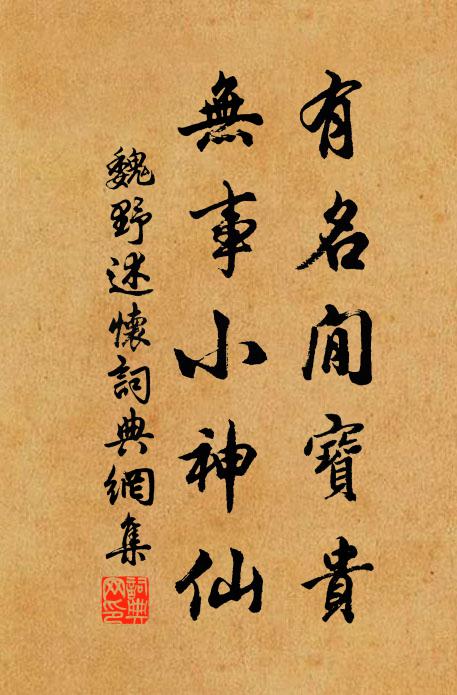 有名閒寶貴
無事小神仙
魏野述懷詞典網集
詞典網印